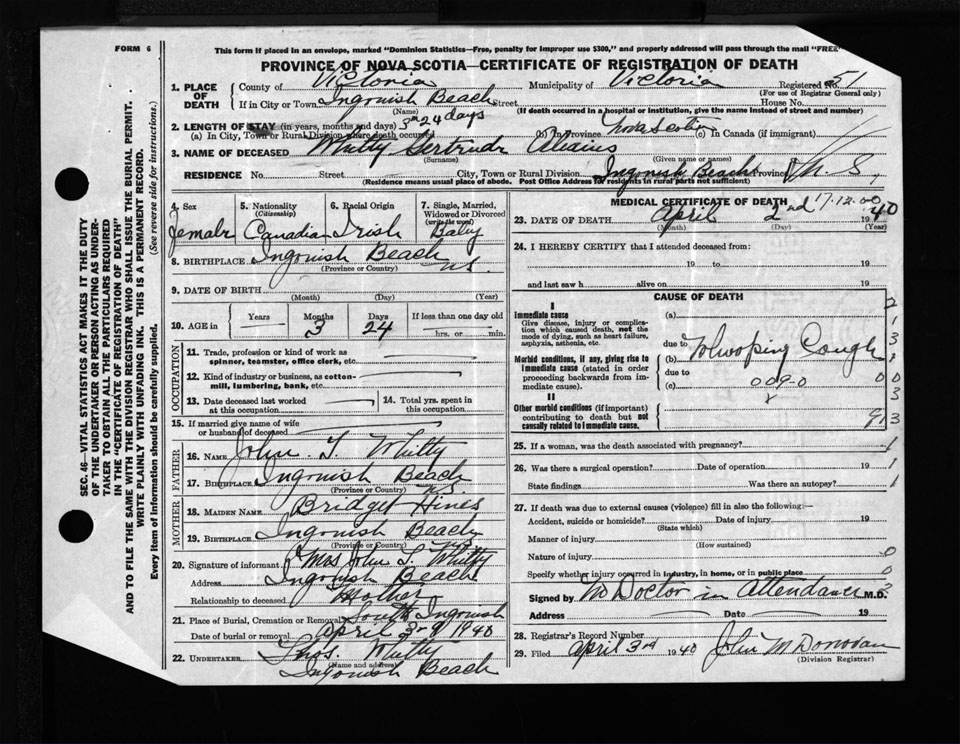 FORM 6
This form if placed in an envelope, marked "Dominion Statistics—Free, penalty for improper use $300," and properly addressed will pass through the mail "FREE"
PROVINCE OF NOVA SCOTIA—CERTIFICATE OF REGISTRATION OF DEATH
SEC. 46—VITAL STATISTICS ACT MAKES IT THE DUTY
OF THE UNDERTAKER OR PERSON ACTING AS UNDER-
TAKER TO OBTAIN ALL THE PARTICULARS REQUIRED
IN THE "CERTIFICATE OF REGISTRATION OF DEATH"
AND TO FILE THE SAME WITH THE DIVISION REGISTRAR WHO SHALL ISSUE THE BURIAL PERMIT.
WRITE PLAINLY WITH UNFADING INK. THIS IS A PERMANENT RECORD.
Every item of information should be carefully supplied. (See reverse side for instructions.)
1. PLACE OF DEATH
County of Victoria Municipality of Victoria Registered No. 51
(For use of Registrar General only)
If in City or Town Ingonish Beach Street House No.
(Name) (If death occurred in a hospital or institution, give the name instead of street and number)
2. LENGTH OF STAY (in years, months and days) 3m 24 days
(a) In City, Town or Rural Division where death occurred (b) In Province Nova Scotia (c) In Canada (if immigrant)
3. NAME OF DECEASED Whitty Gertrude
(Surname) (Given name or names)
RESIDENCE No. Street City, Town or Rural Division Ingonish Beach Province N.S.
(Residence means usual place of abode. Post Office Address for residents in rural parts not sufficient)
4. Sex 5. Nationality (Citizenship) 6. Racial Origin 7. Single, Married, Widowed or Divorced (write the word)
Female Canadian Irish Baby
8. BIRTHPLACE Ingonish Beach N.S.
(Province or Country)
9. DATE OF BIRTH
(Month) (Day) (Year)
10. AGE in Years Months Days If less than one day old
3 24 hrs. or min.
OCCUPATION
11. Trade, profession or kind of work as
spinner, teamster, office clerk, etc.
12. Kind of industry or business, as cotton-
mill, lumbering, bank, etc.
13. Date deceased last worked
at this occupation
14. Total yrs. spent in
this occupation
15. If married give name of wife
or husband of deceased
FATHER
16. Name John T. Whitty
17. Birthplace Ingonish Beach N.S.
(Province or Country)
MOTHER
18. Maiden Name Bridget Hines
19. Birthplace Ingonish Beach N.S.
(Province or Country)
20. Signature of informant Mrs John T. Whitty
Address Ingonish Beach
Relationship to deceased Mother
21. Place of Burial, Cremation or Removal South Ingonish
Date of burial or removal April 3rd 1940
22. UNDERTAKER Thos. Whitty
(Name and address)
Ingonish Beach
MEDICAL CERTIFICATE OF DEATH
17-12-00
23. DATE OF DEATH April 2nd 40
(Month) (Day) (Year)
24. I HEREBY CERTIFY that I attended deceased from:
19 to 19
and last saw h alive on 19
CAUSE OF DEATH
I
Immediate cause
Give disease, injury or complica-
tion which caused death, not the
mode of dying, such as heart failure,
asphyxia, asthenia, etc.
(a)
due to
Morbid conditions, if any, giving rise to
immediate cause (stated in order
proceeding backwards from im-
mediate cause).
(b) Whooping Cough
due to
(c) 009-0
II
Other morbid conditions (if important)
contributing to death but not
causally related to immediate cause.
25. If a woman, was the death associated with pregnancy?
26. Was there a surgical operation? Date of operation 19
State findings Was there an autopsy?
27. If death was due to external causes (violence) fill in also the following:—
Accident, suicide or homicide? Date of injury 19
(State which)
Manner of injury
(How sustained)
Nature of injury
Specify whether injury occurred in industry, in home, or in public place
Signed by No Doctor in Attendance M.D.
Address Date 19
28. Registrar's Record Number
29. Filed April 3rd 1940 John M Donovan
(Division Registrar)